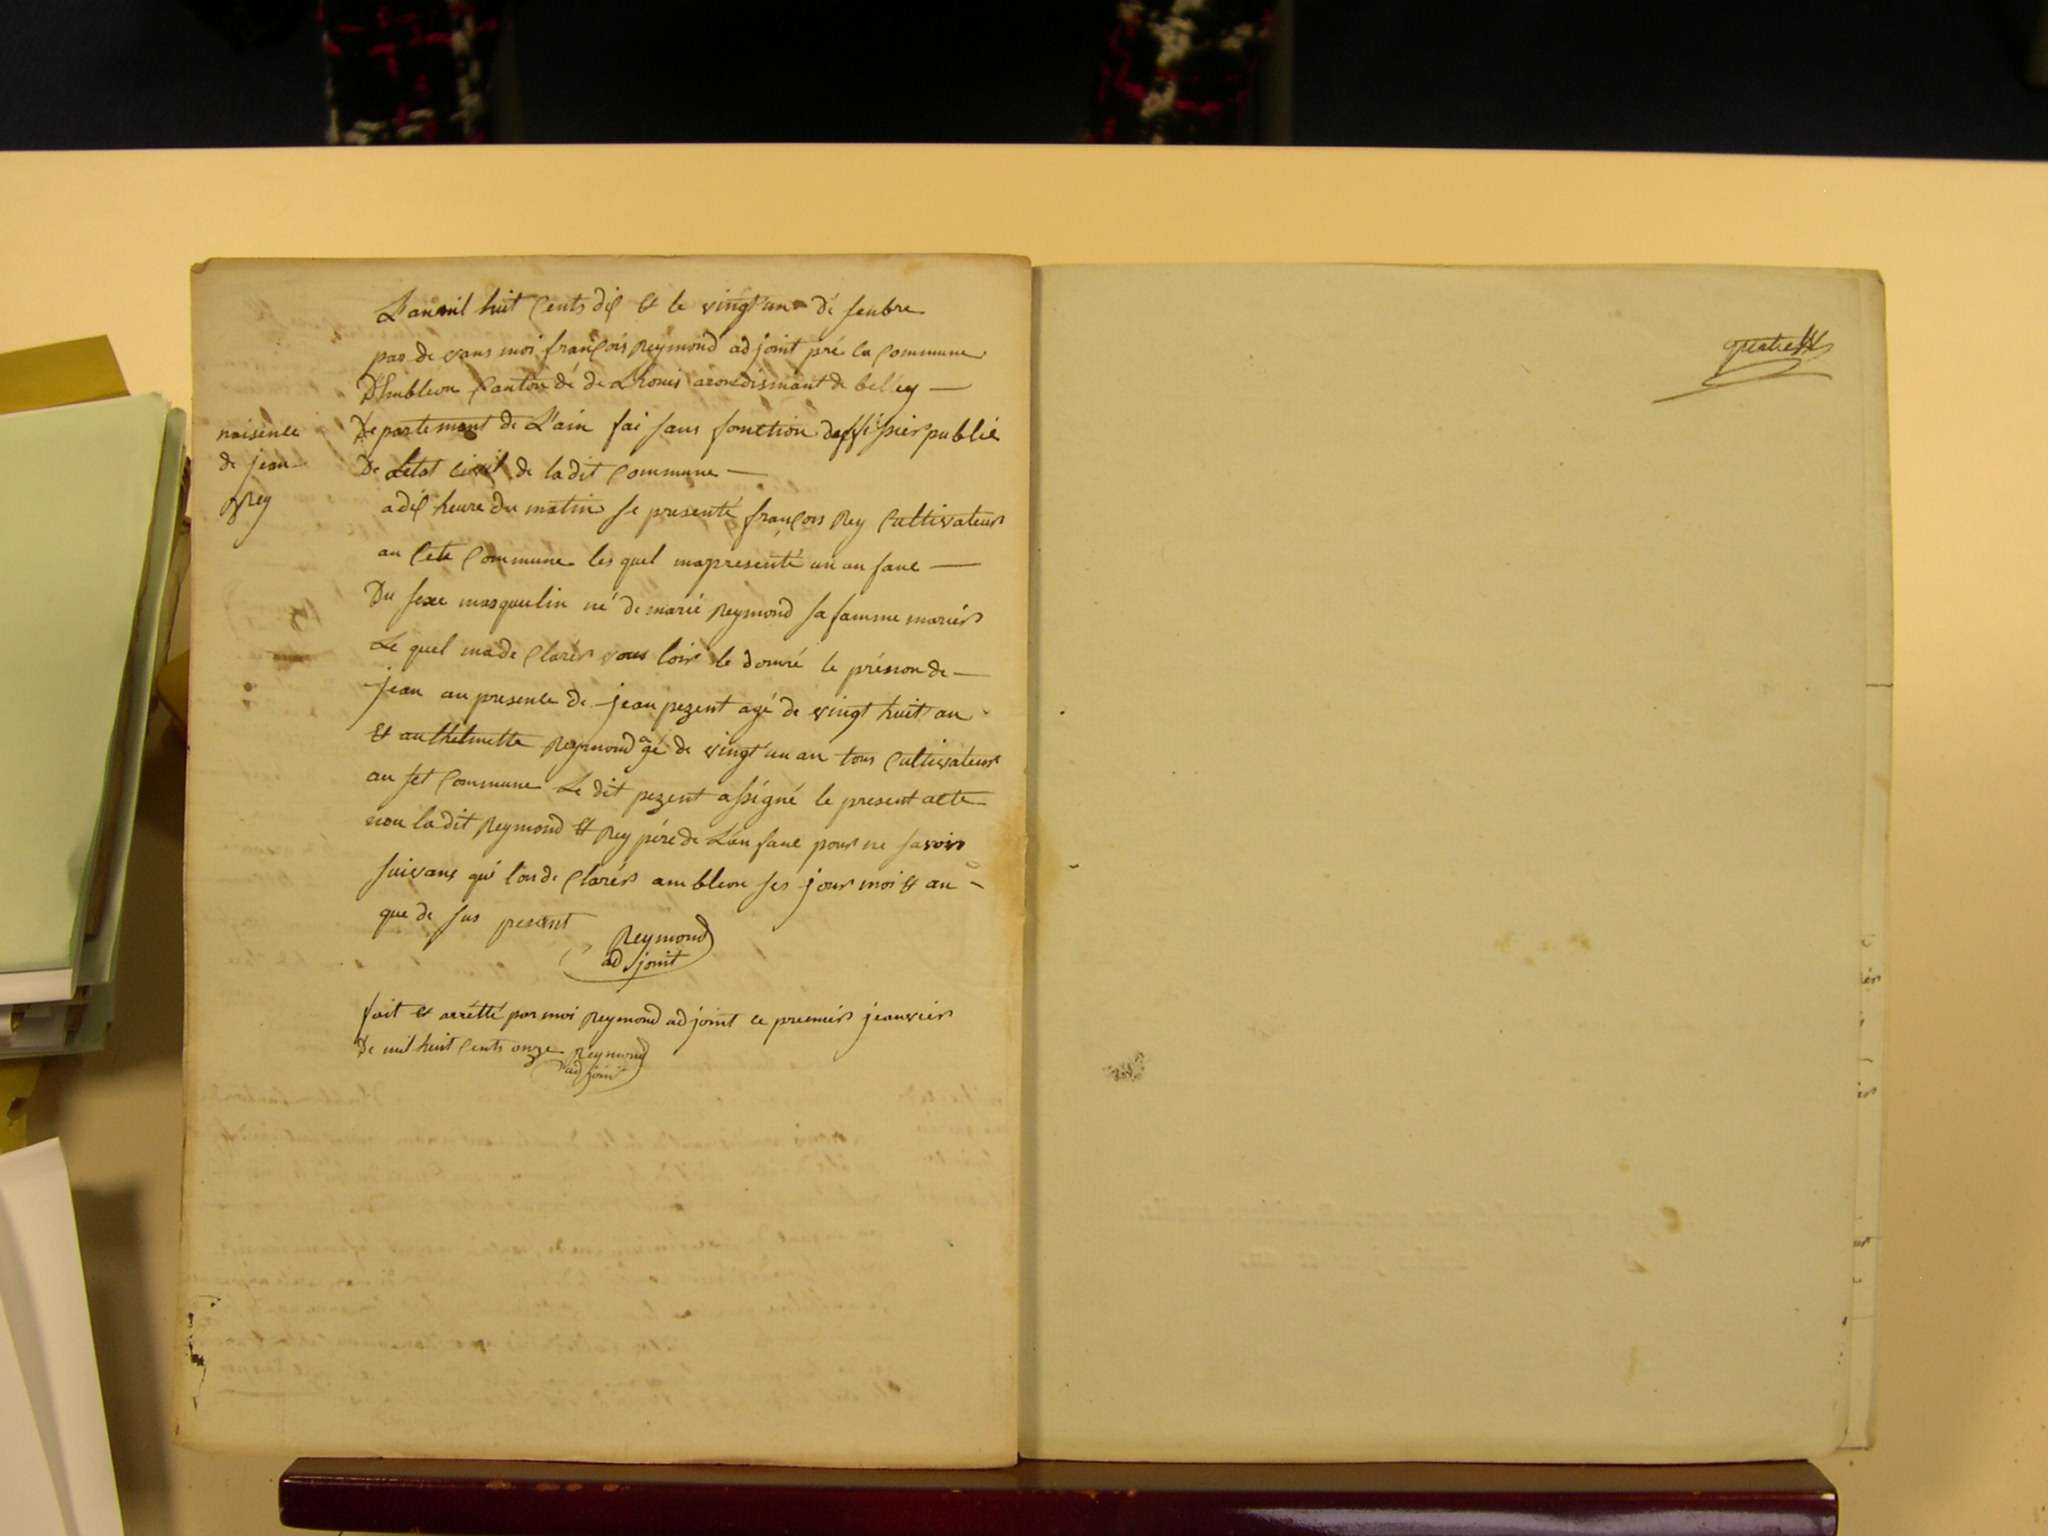 naisence
de jean
Rey
L'an mil huit Cents dix & le vingt un dé senbre
par de vans moi françois Reymond ad joint pré la Commune
D'Embleon Canton dé de Lhouis arondismant de belley —
De partemant de L'ain fai sans fonction doffissier publié
De Letat civil de la dit Commune —
a dix heure du matin se presenté françois Rey Cultivateur
an Cete Commune les quel ma presenté un an fane —
Du sexe masqulin né de marie Reymond sa famme mariér
Le quel ma de Clarér vous loir le donné le prénon de —
jean an presence de jean pezent agé de vingt huit an
& anthelmette Reymond agé de vingt un an tous Cultivateur
an set Commune Le dit pezent a ssigné le present acte
non la dit Reymond & Rey pére de L'an fane pour ne savoir
suivans qui lon de Clarér am bleon ses jour moi & an
que de sus present
Reymond
ad joint
fait & arrétté par moi Reymond ad joint ce premier jeanvier
De mil huit Cents onze Reymond
ad joint